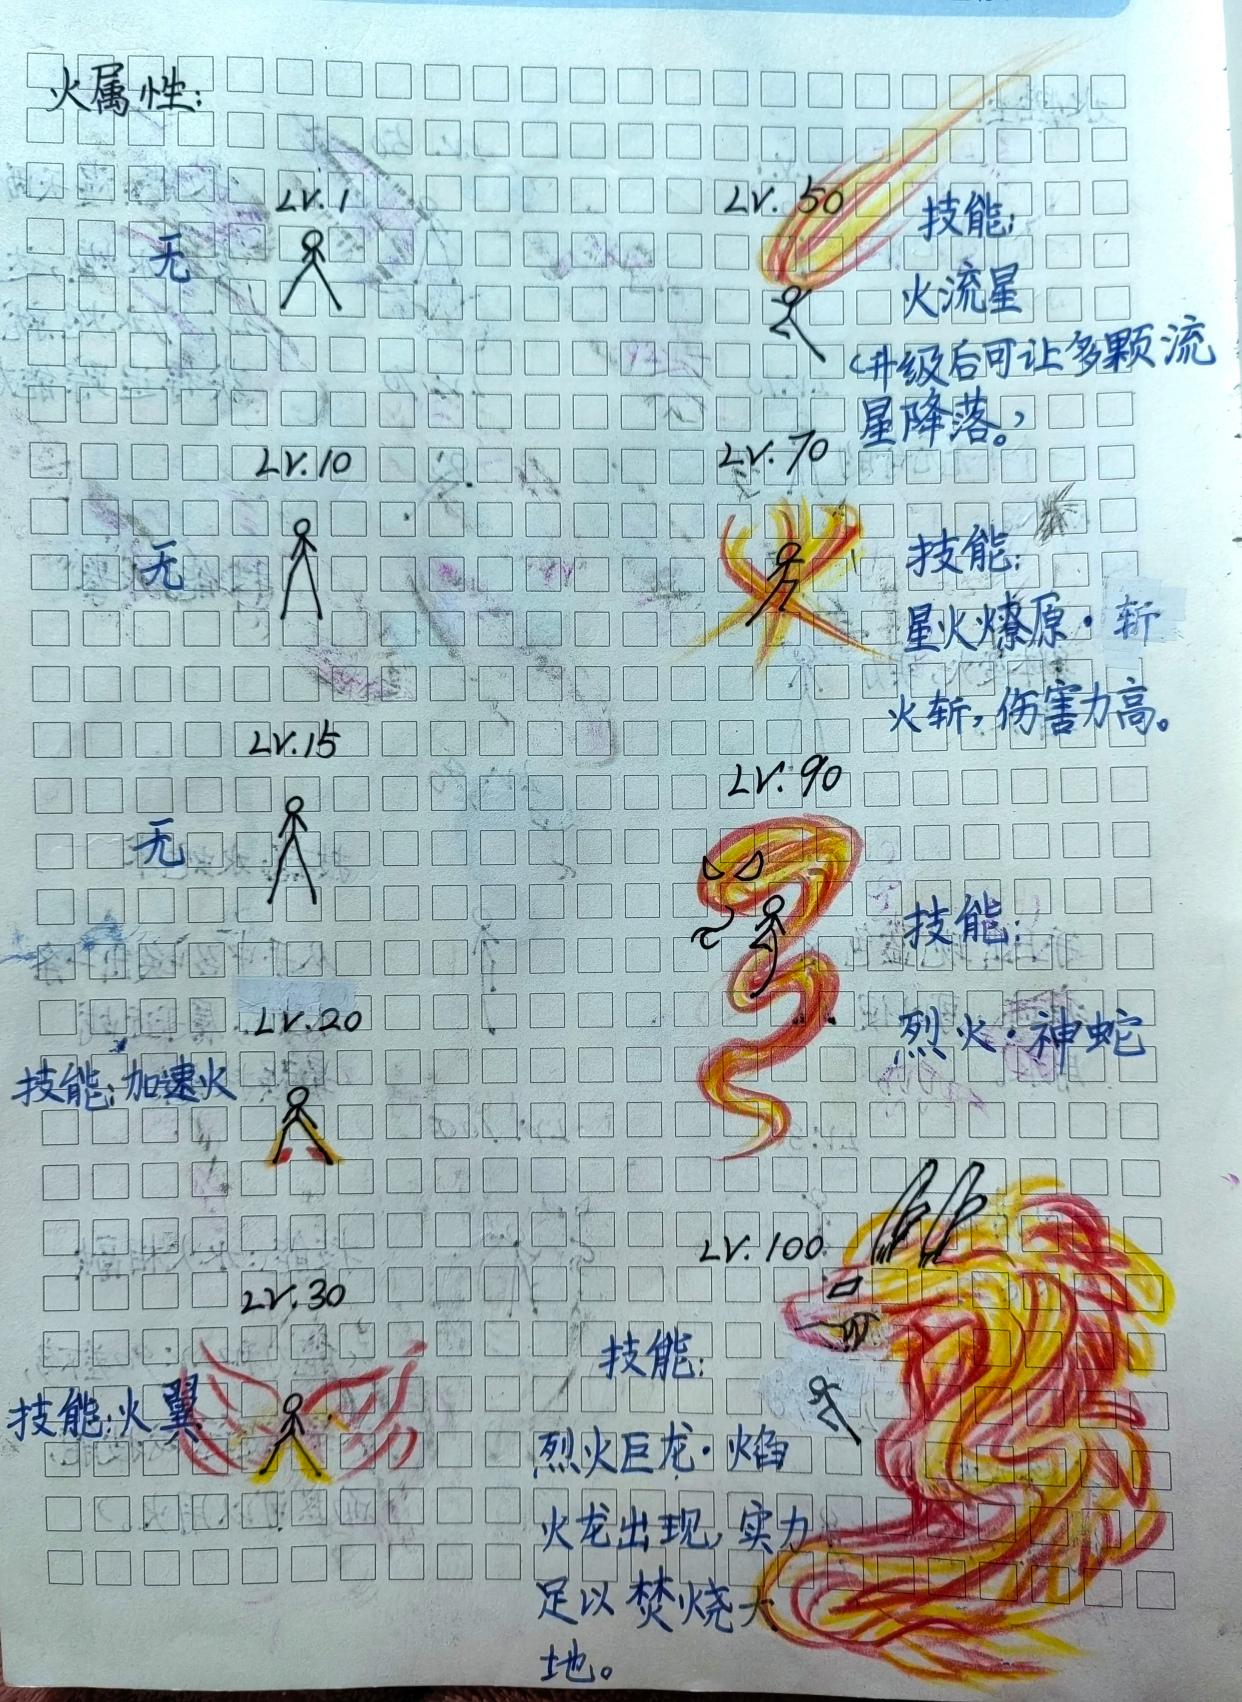 火属性:
Lv.1
无
Lv.10
无
Lv.15
无
Lv.20
技能:加速火
Lv.30
技能:火翼
Lv.50
技能:
火流星
(升级后可让多颗流
星降落。)
Lv.70
技能:
星火燎原·斩
火斩,伤害力高。
Lv.90
技能:
烈火·神蛇
Lv.100
技能:
烈火巨龙·焰
火龙出现,实力
足以焚烧大
地。